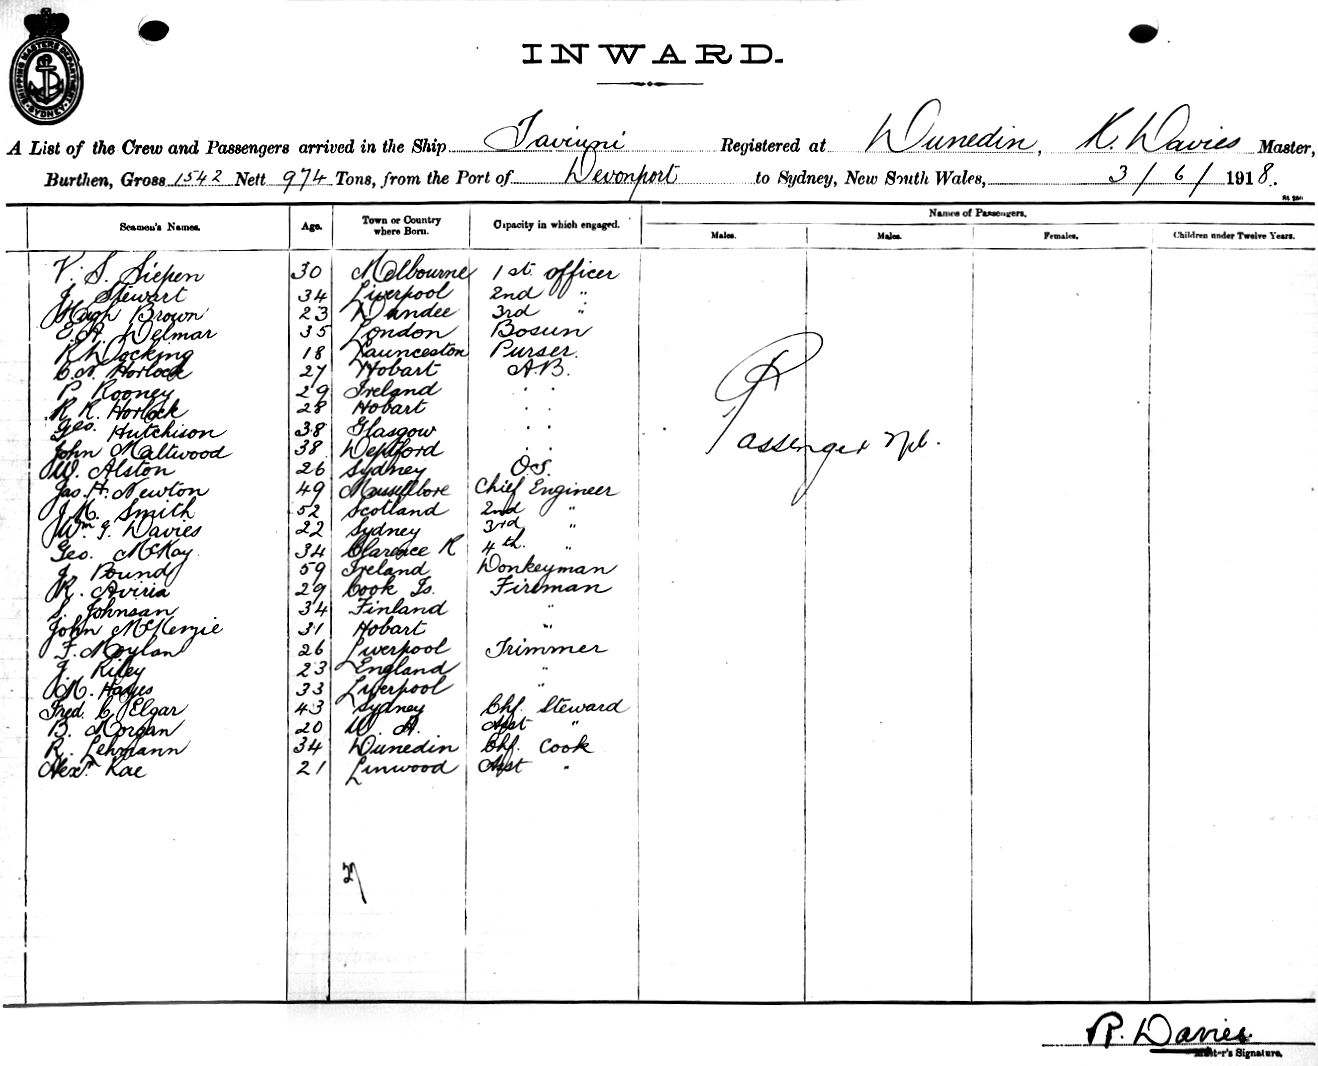 SHIPPING MASTERS DEPARTMENT SYDNEY
INWARD.
A List of the Crew and Passengers arrived in the Ship Taviuni Registered at Dunedin, K. Davies Master,
Burthen, Gross 1542 Nett 974 Tons, from the Port of Devonport to Sydney, New South Wales, 3/6/1918.
Names of Passengers.
Seamen's Names. Age. Town or Country where Born. Capacity in which engaged. Males. Males. Females. Children under Twelve Years.
V. S. Siepen 30 Melbourne 1st officer
J. Stewart 34 Liverpool 2nd "
Hugh Brown 23 Dundee 3rd "
E. A. Delmar 35 London Bosun
R Docking 18 Launceston Purser.
C. N. Horlock 27 Hobart A.B.
P. Rooney 29 Ireland " "
R R. Horlock 28 Hobart " "
Geo. Hutchison 38 Glasgow " "
John Maltwood 38 Deptford " "
W. Alston 26 Sydney O.S.
Jas. H. Newton 49 Chief Engineer
J. K. Smith 52 Scotland 2nd "
Wm J. Davies 22 Sydney 3rd "
Geo. McKay 34 Clarence R 4th. "
J. Bound 59 Ireland Donkeyman
K. Aviria 29 Cook Is. Fireman
S. Johnsan 34 Finland "
John McKenzie 31 Hobart "
F. Moylan 26 Liverpool Trimmer
J. Riley 23 England "
M. Hayes 33 Liverpool "
Fred. C. Elgar 43 Sydney Chf. Steward
B. Morgan 20 W. A. Asst "
R. Lehmann 34 Dunedin Chf. Cook
Alexr. Rae 21 Linwood Asst "
Passenger Npl.
27
R. Davies
Master's Signature.